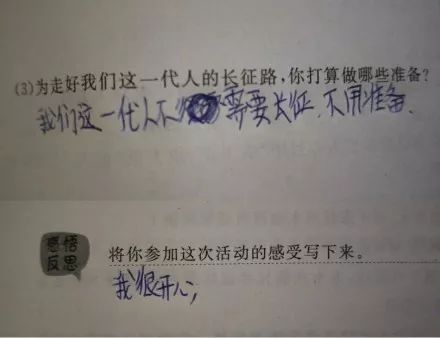 (3)为走好我们这一代人的长征路,你打算做哪些准备?
我们这一代人不需要长征,不用准备.
感悟
反思
将你参加这次活动的感受写下来。
我很开心,